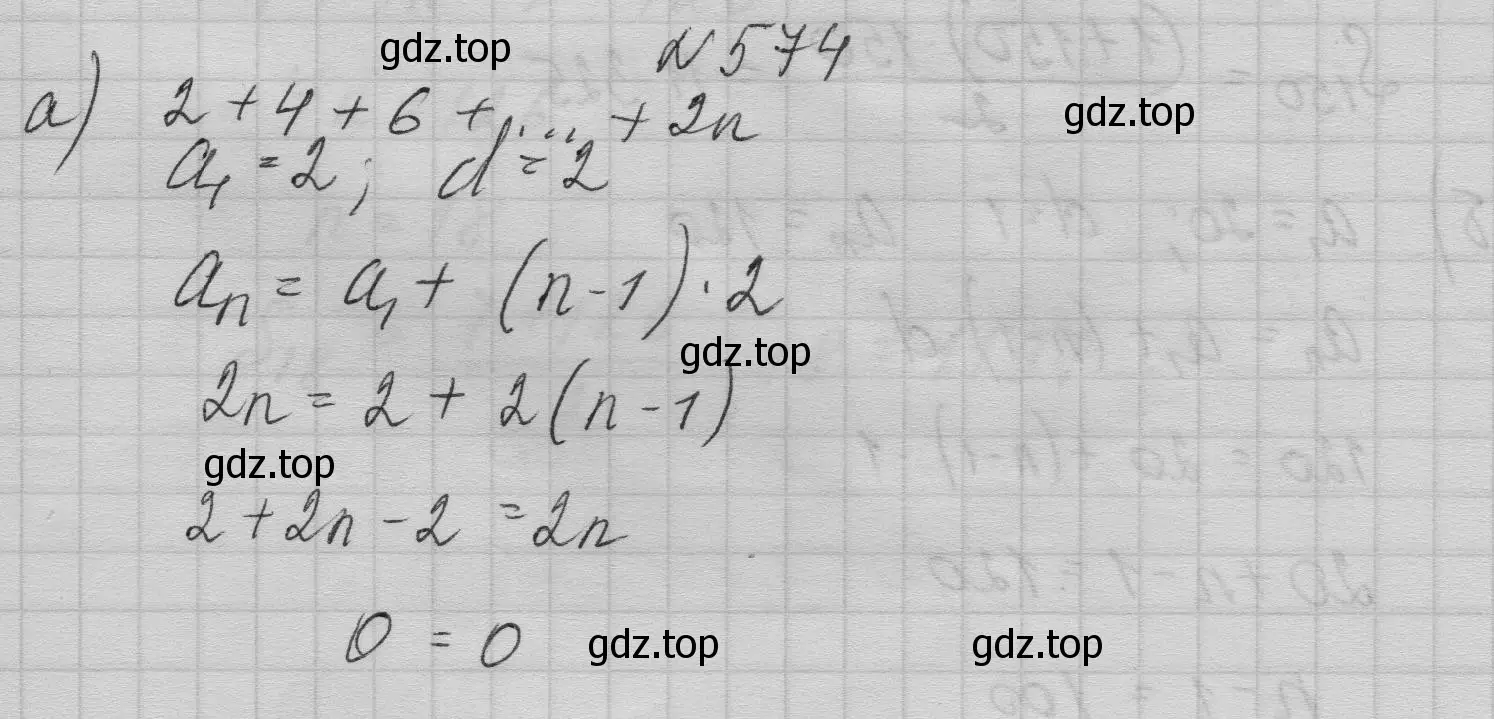 gdz.top
№ 574
а) 2 + 4 + 6 + ... + 2n
gdz.top
a₁ = 2; d = 2
aₙ = a₁ + (n-1) · 2
gdz.top
2n = 2 + 2(n-1)
gdz.top
2 + 2n - 2 = 2n
0 = 0
gdz.top
gdz.top